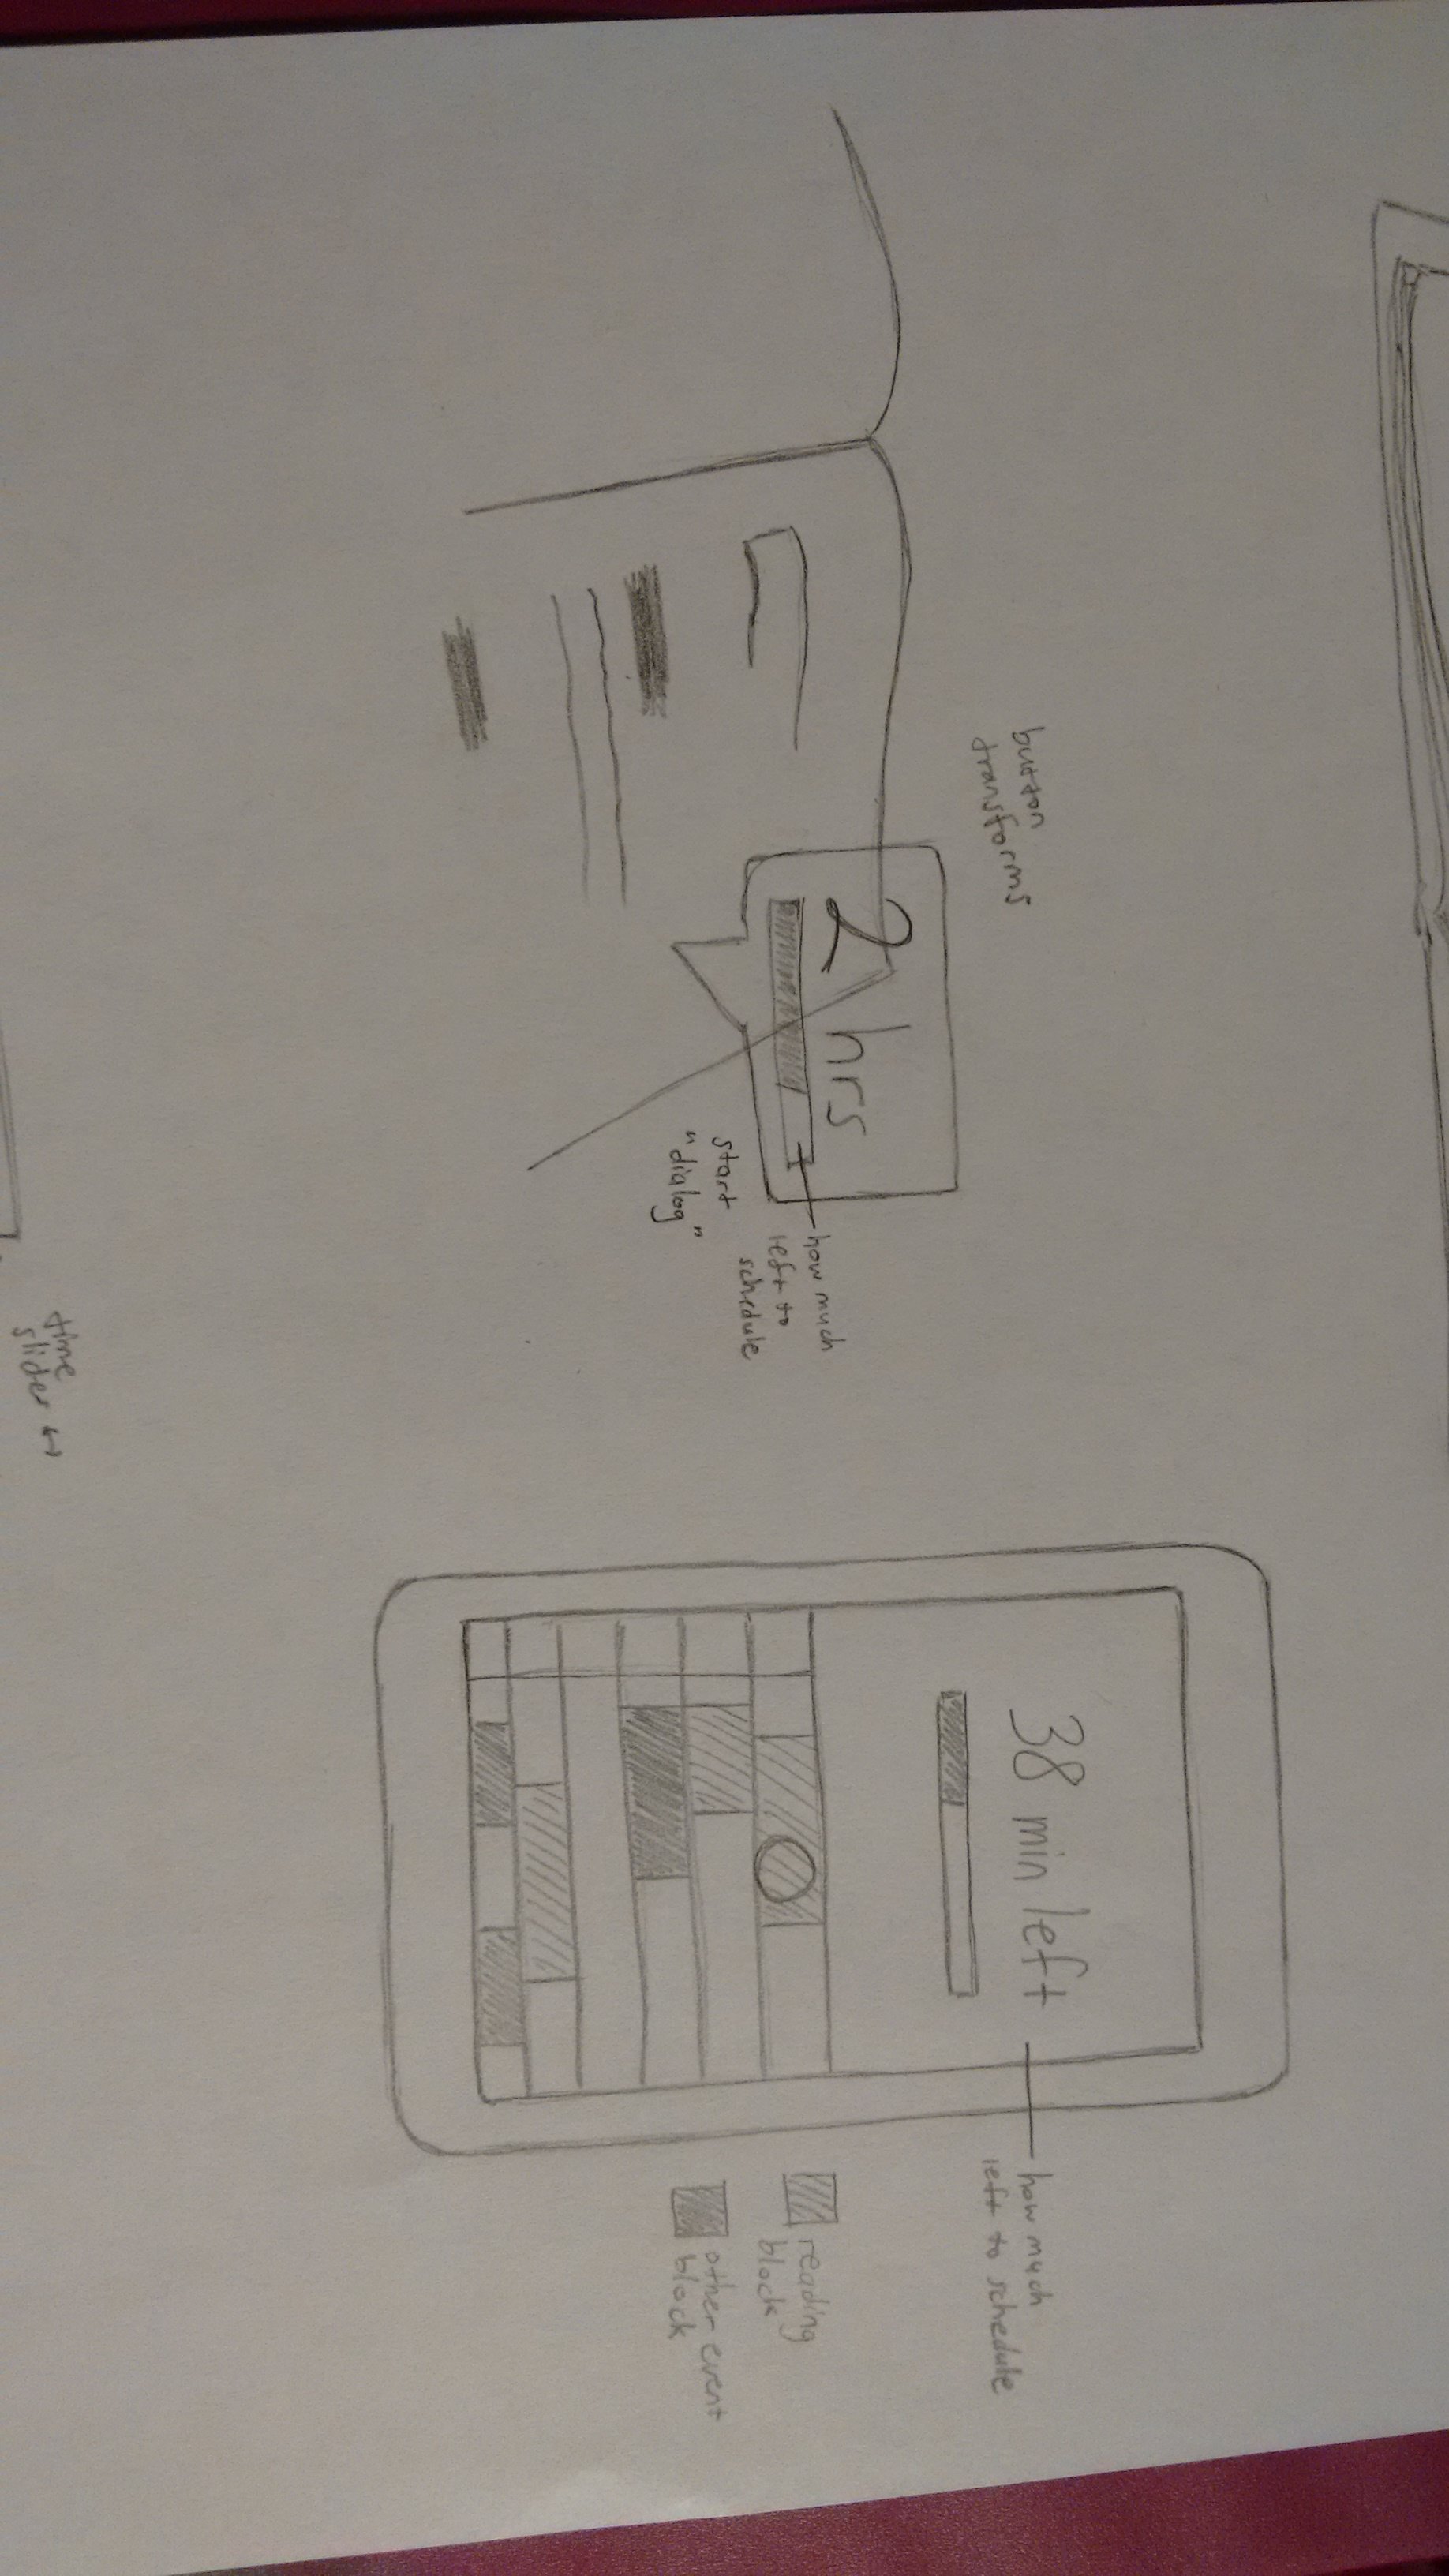 button
transforms
2 hrs
how much
left to
schedule
start
"dialog"
time
slider ↔
38 min left
how much
left to schedule
reading
block
other event
block